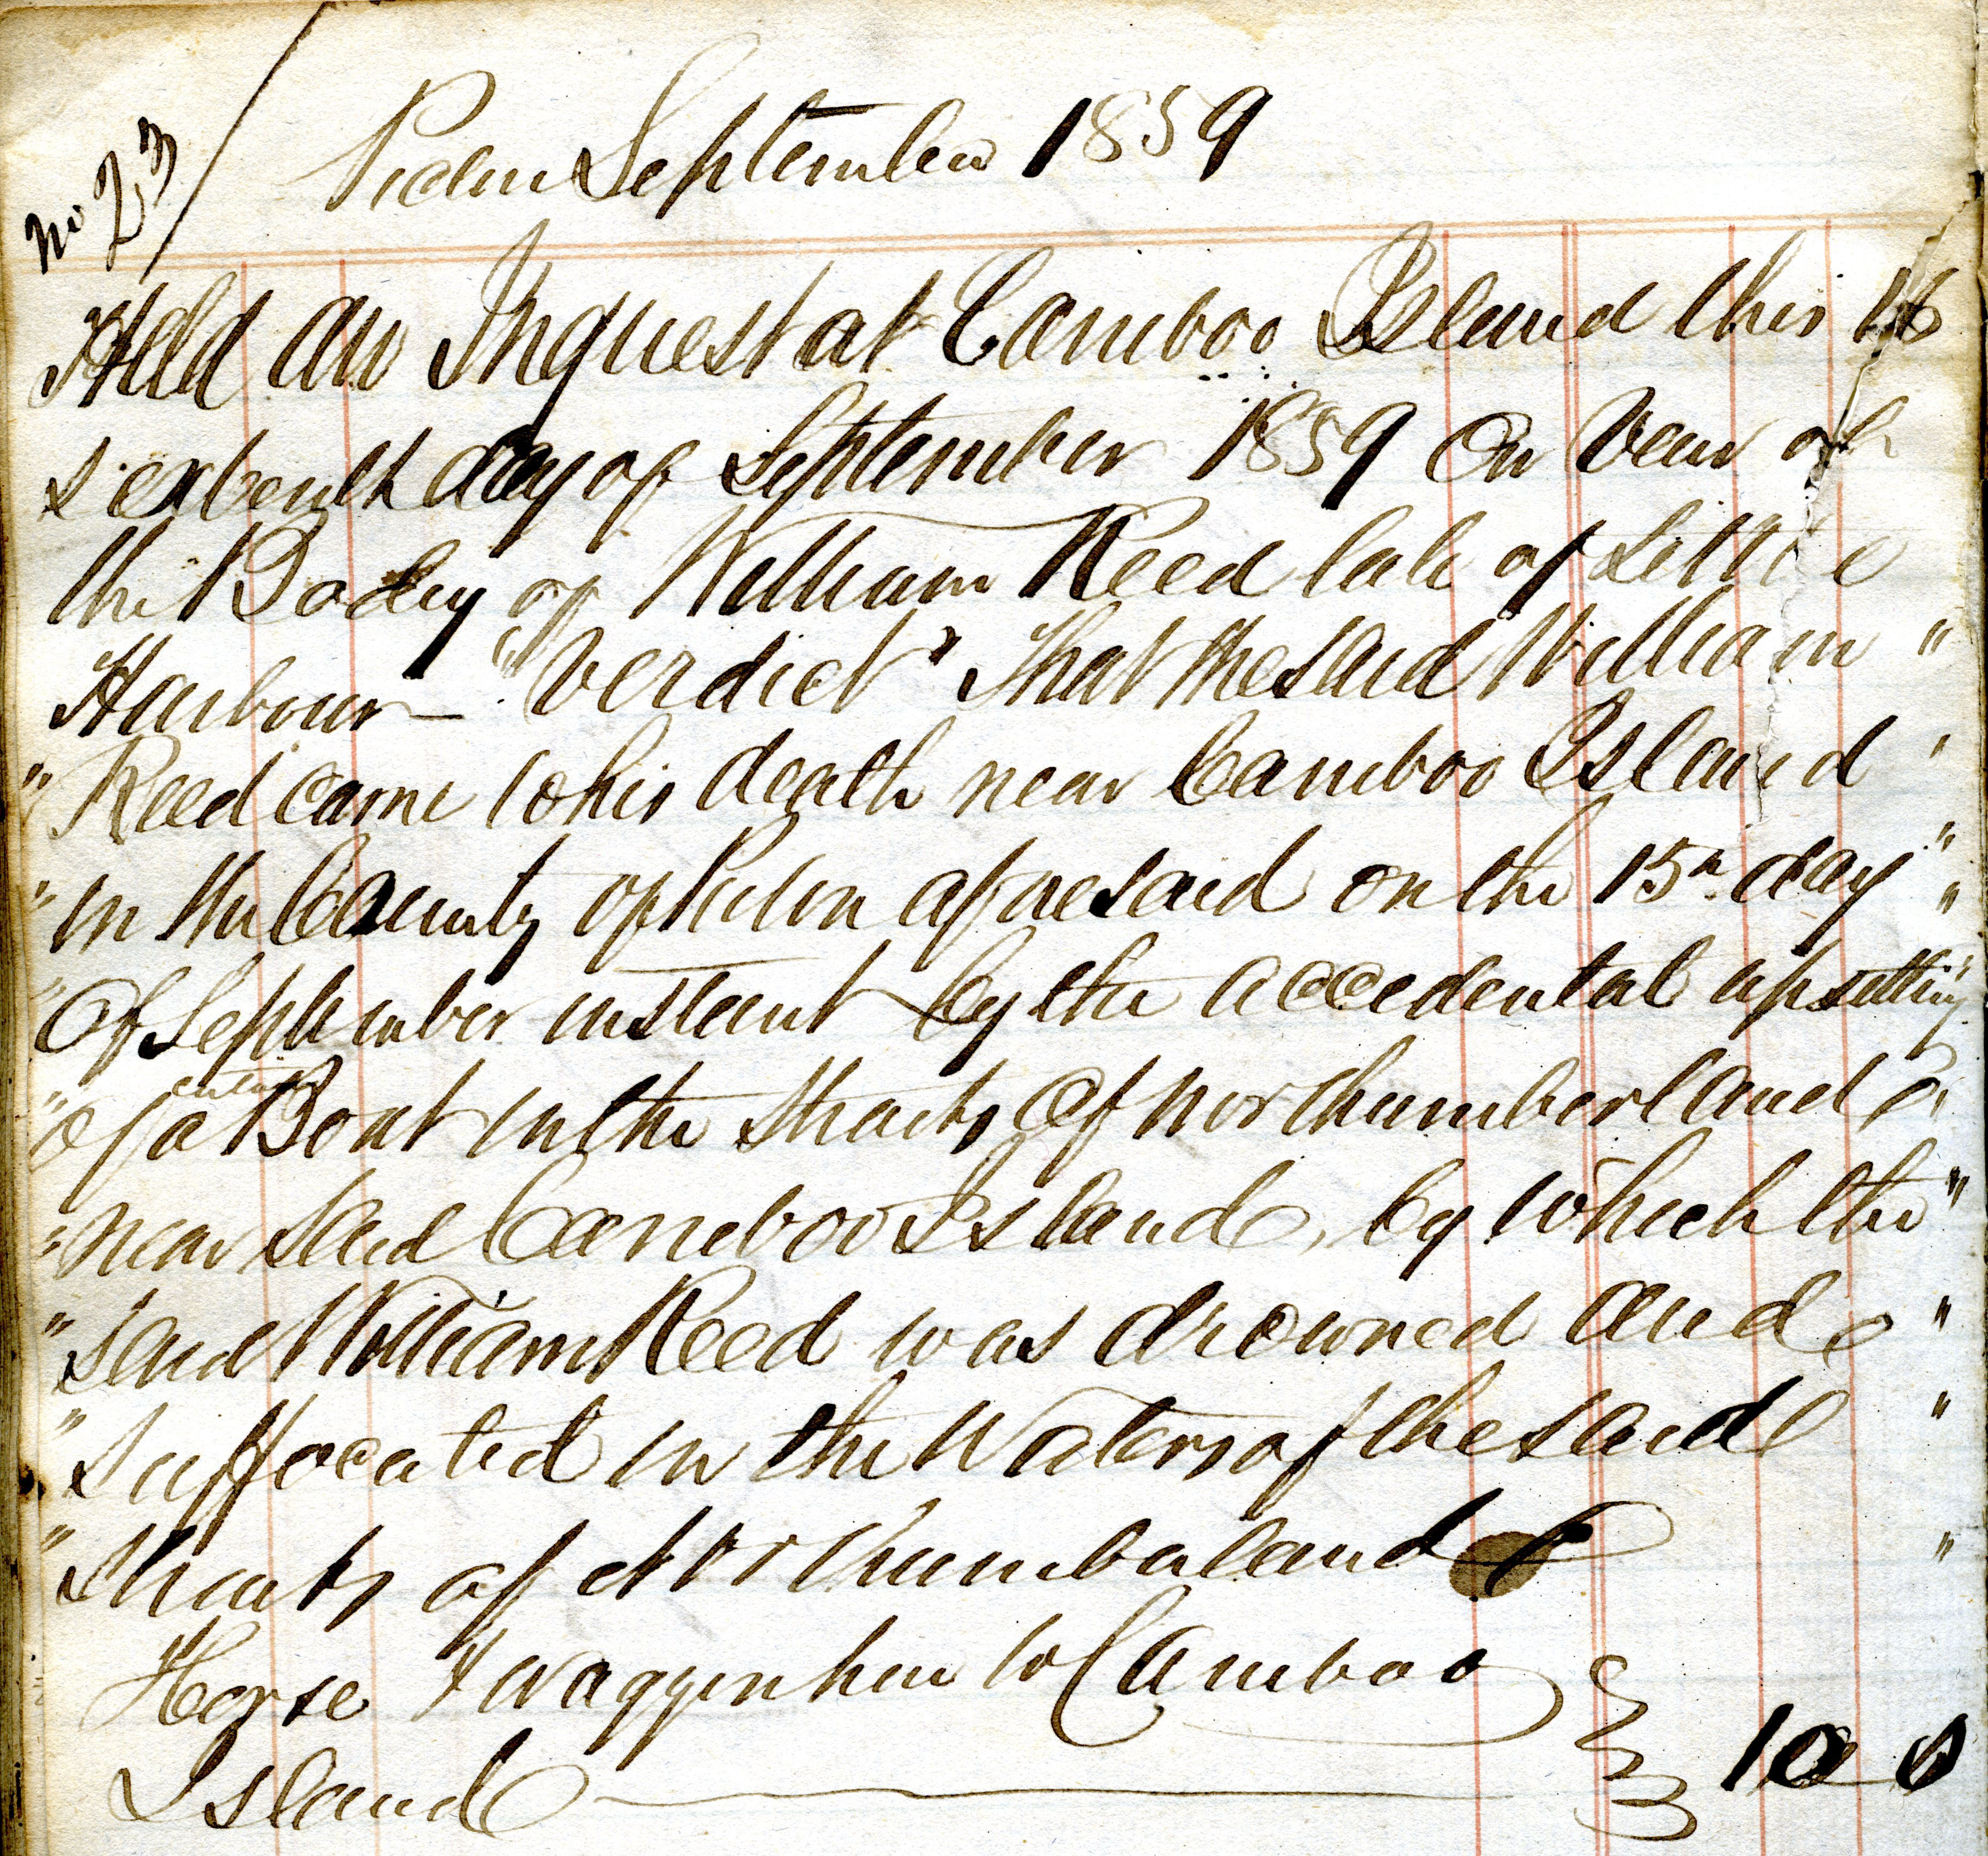 No 23
Pictou September 1859
Held an Inquest at Cariboo Island this 16
sixteenth day of September 1859 On View of
the Body of William Reed late of Little
Harbour — "Verdict" That the said William "
" Reed came to his death near Cariboo Island "
" in the County of Pictou aforesaid on the 15th day "
" Of September instant by the accedental upsetting "
" of a Boat in the Straits Of Northumberland "
" near said Cariboo Island, by which the "
" said William Reed was drowned and "
" Suffocated in the Waters of the said "
" Straits of Northumberland "
Horse & waggon hire to Cariboo
Island — 10 0